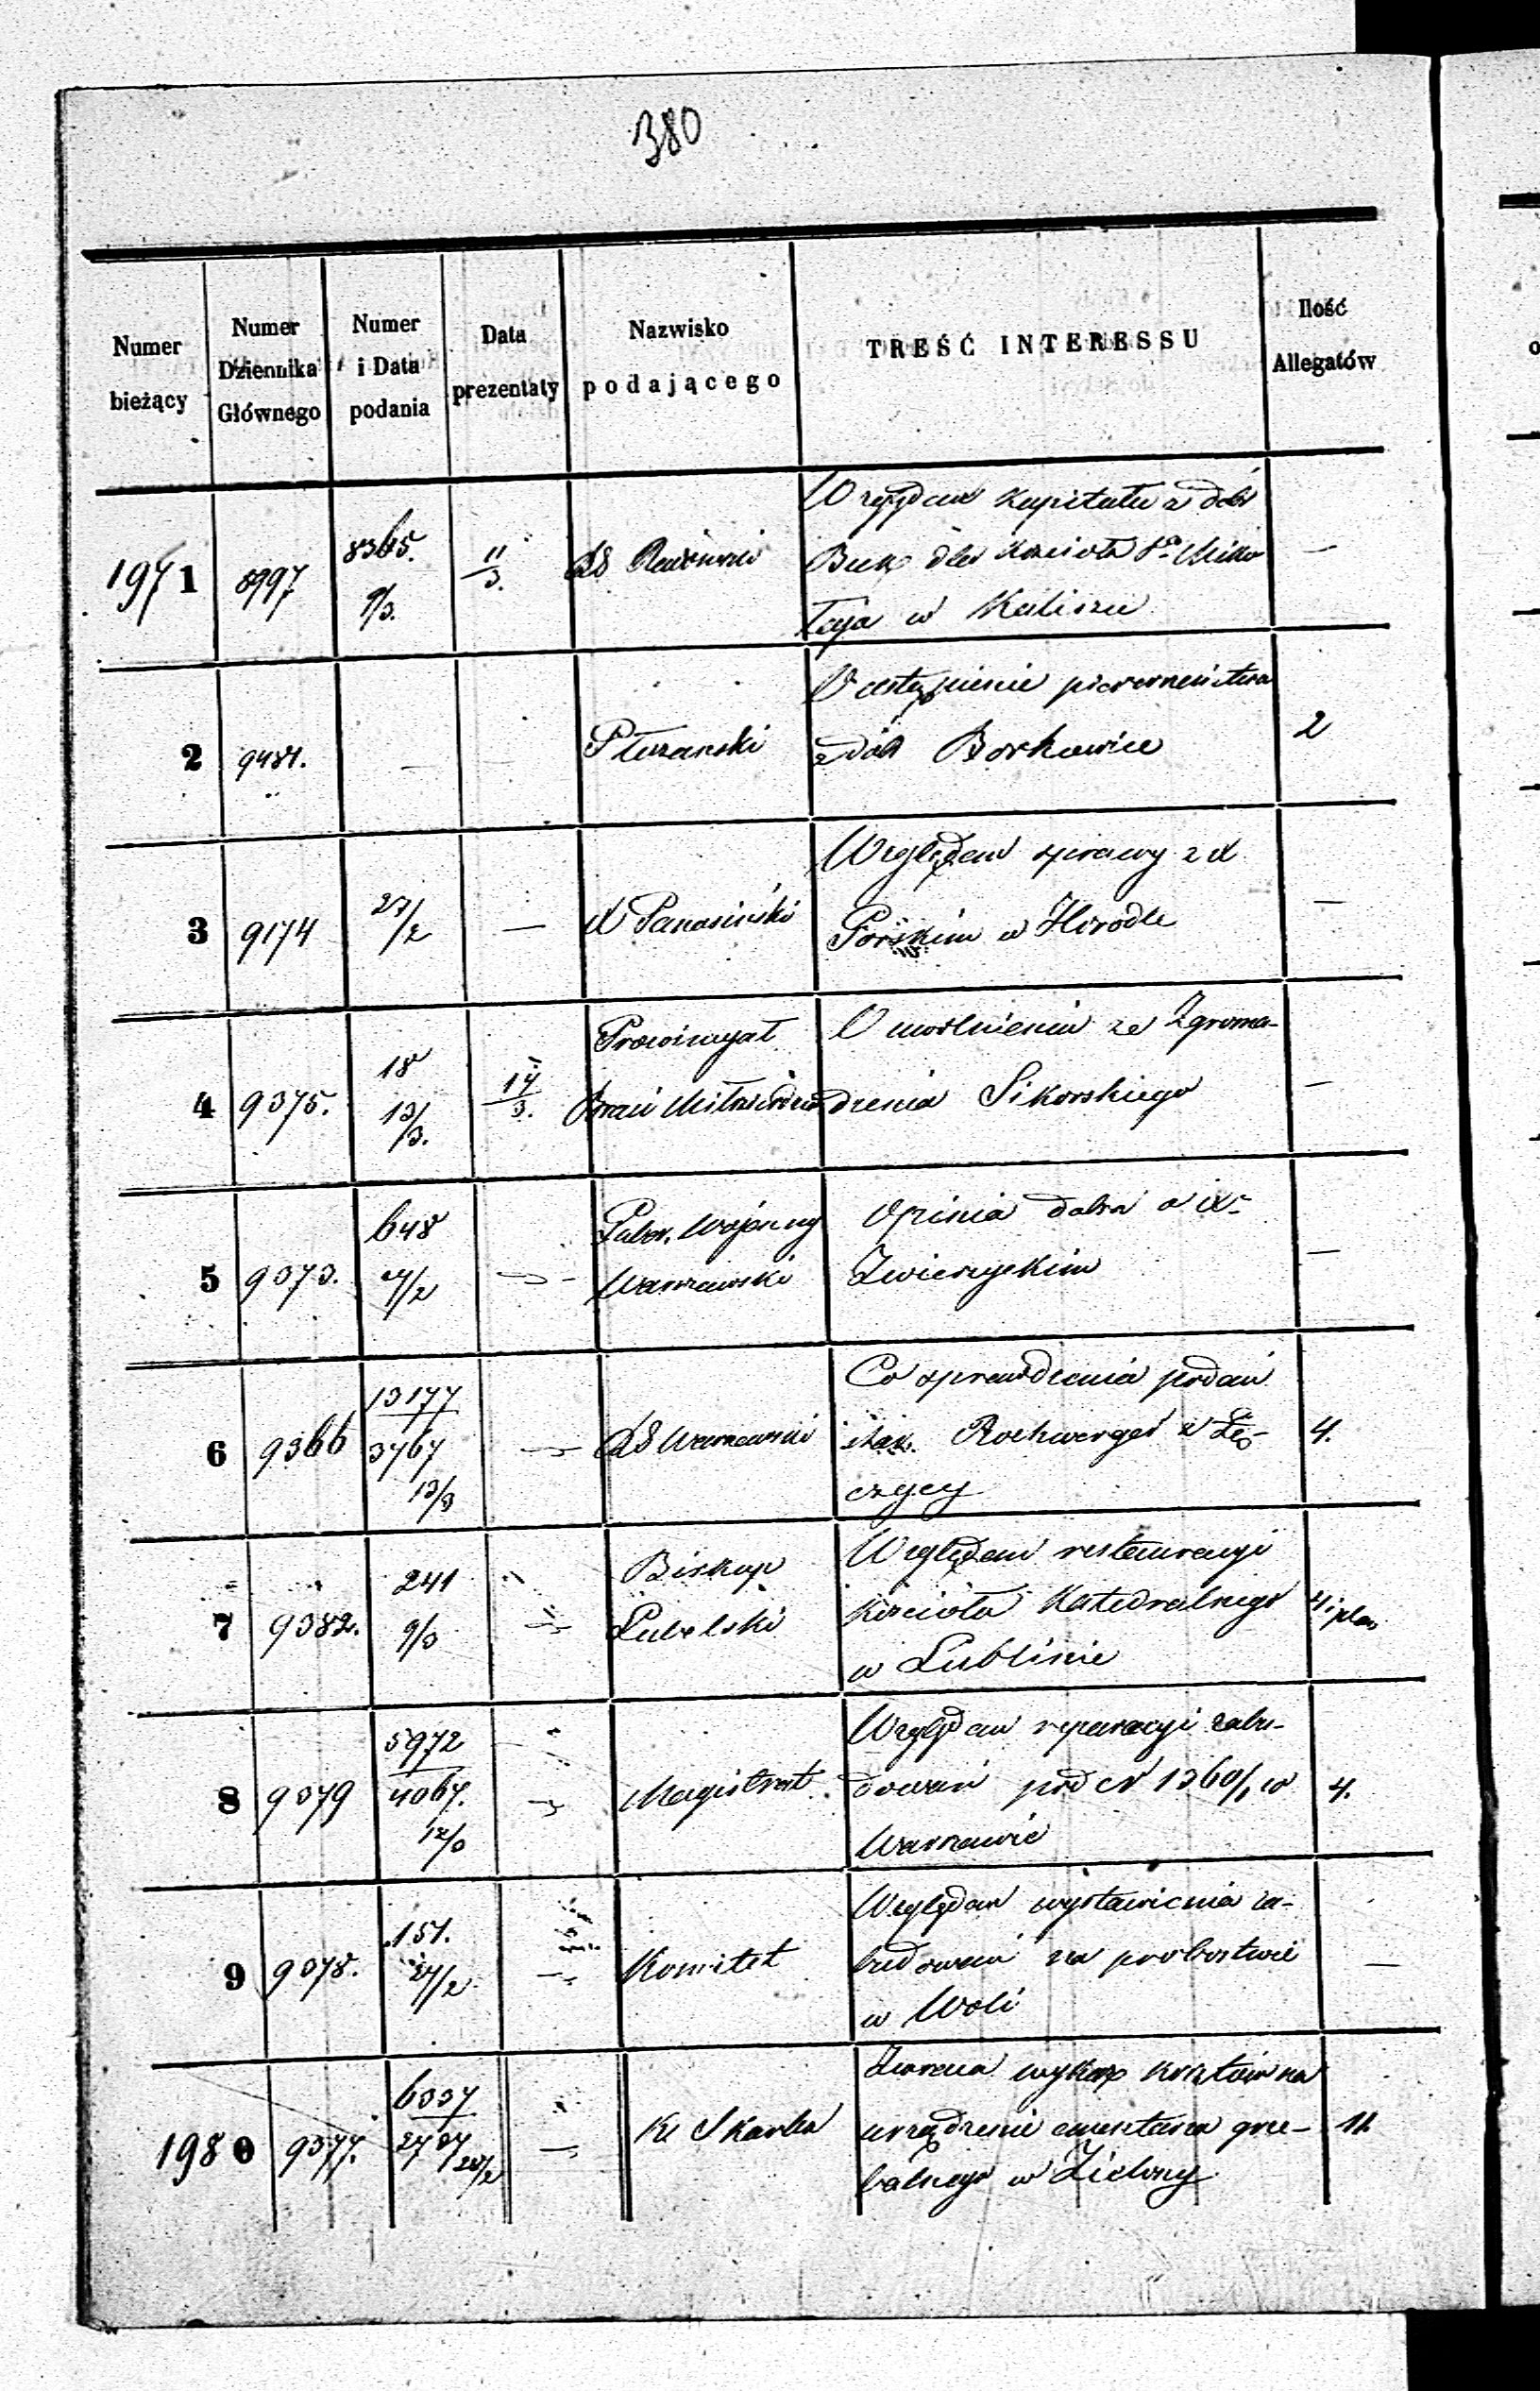 380
Numer bieżący
Numer Dziennika Głównego
Numer i Data podania
Data prezentaty
Nazwisko podającego
TREŚĆ INTERESSU
Ilość Allegatów
1971 8997 8365. 9/3. 11/3.
Względem Kapitału z dóbr
Buk dla Kościoła Sgo Miko
łaja w Kaliszu
—
2 9481. —
O ustąpienie pierwszeństwa
z dóbr Borkowice
2
3 9174 27/2 — X Panasiński
Względem sprawy z X
Porskim w Horodle
—
4 9375. 18 13/3. 14/3.
Prowincyał
Braci Miłosierdzia
O uwolnienie ze Zgroma-
dzenia Sikorskiego
—
5 9373. 648 /2
Guber. Wojenny
Warszawski
Opinia dobra o X.
Zwierzyckim
—
6 9366 13177 3767 13/3
Warszawski
Co sprawdzenia podań
Rochwerger z Łę-
czycy
4.
7 9382. 241 9/3
Biskup
Lubelski
Względem restauracyi
Kościoła Katedralnego
w Lublinie
4 i plan
8 9379 5972 4067. 12/3
Magistrat
Względem reparacyi zabu-
dowań pod N 1360/1 w
Warszawie
4.
9 9378. 151. 27/2
Komitet
Względem wystawienia za-
budowań na probostwie
w Woli
—
1980 9377. 6337 28/2
K Skarbu
Zwraca wykaz kosztów na
urządzenie cmentarza grze-
balnego w Zielony
11.